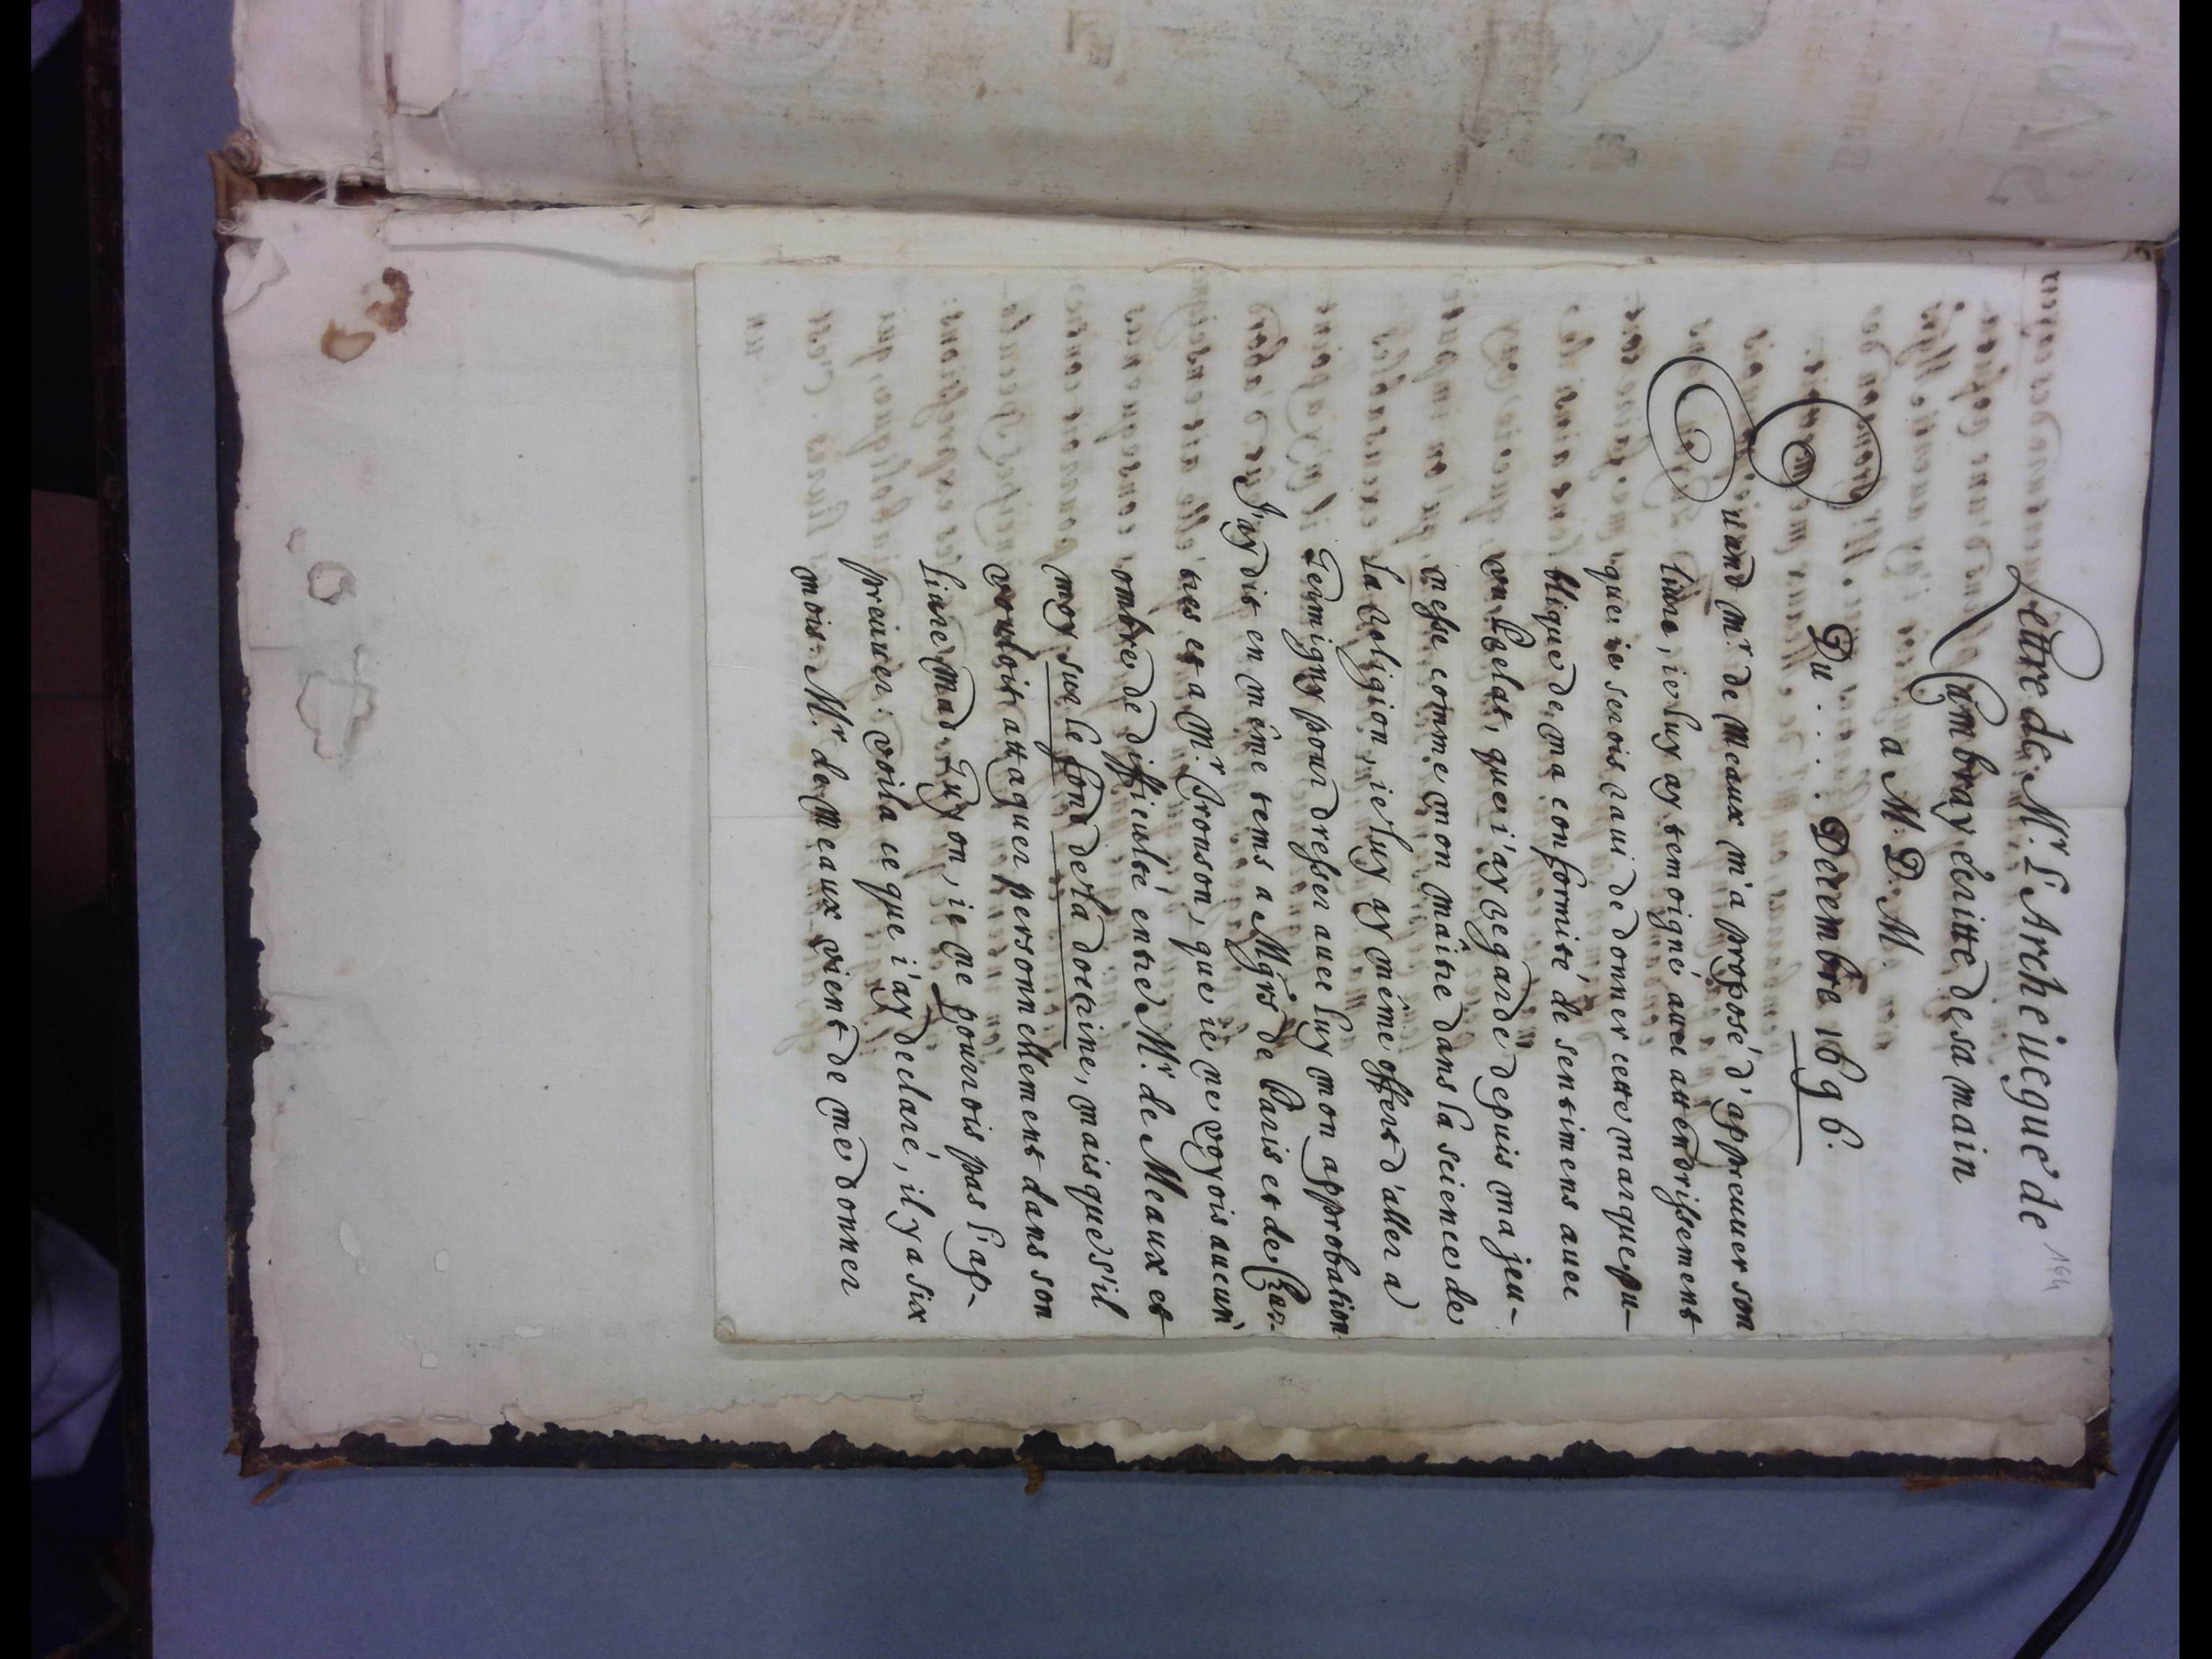 Lettre de Mr. L'Archeuêque de
Cambray écritte de sa main
a M. D. M.
Du . . . . Decembre 1696.
164
Quand Mr. de Meaux m'a proposé d'appreuuer son
liure, ie luy ay temoigné auec attendrissement
que ie serois raui de donner cette marque pu-
blique de ma conformité de sentimens auec
vn Prelat, que i'ay regardé depuis ma jeu-
nesse comme mon maître dans la science de
la Religion, ie luy ay même offert d'aller a
Germigny pour dresser auec luy mon approbation
J'ay dit en même tems a Mgrs de Paris et de Char-
tres et a Mr. Tronson, que ie ne voyois aucun
ombre de difficulté entre Mr. de Meaux et
moy sur le fond de la doctrine, mais que s'il
vouloit attaquer personnellement dans son
liure Mad. Guyon, ie ne pourrois pas l'ap-
preuuer: voila ce que i'ay declaré, il y a six
mois. Mr. de Meaux vient de me donner